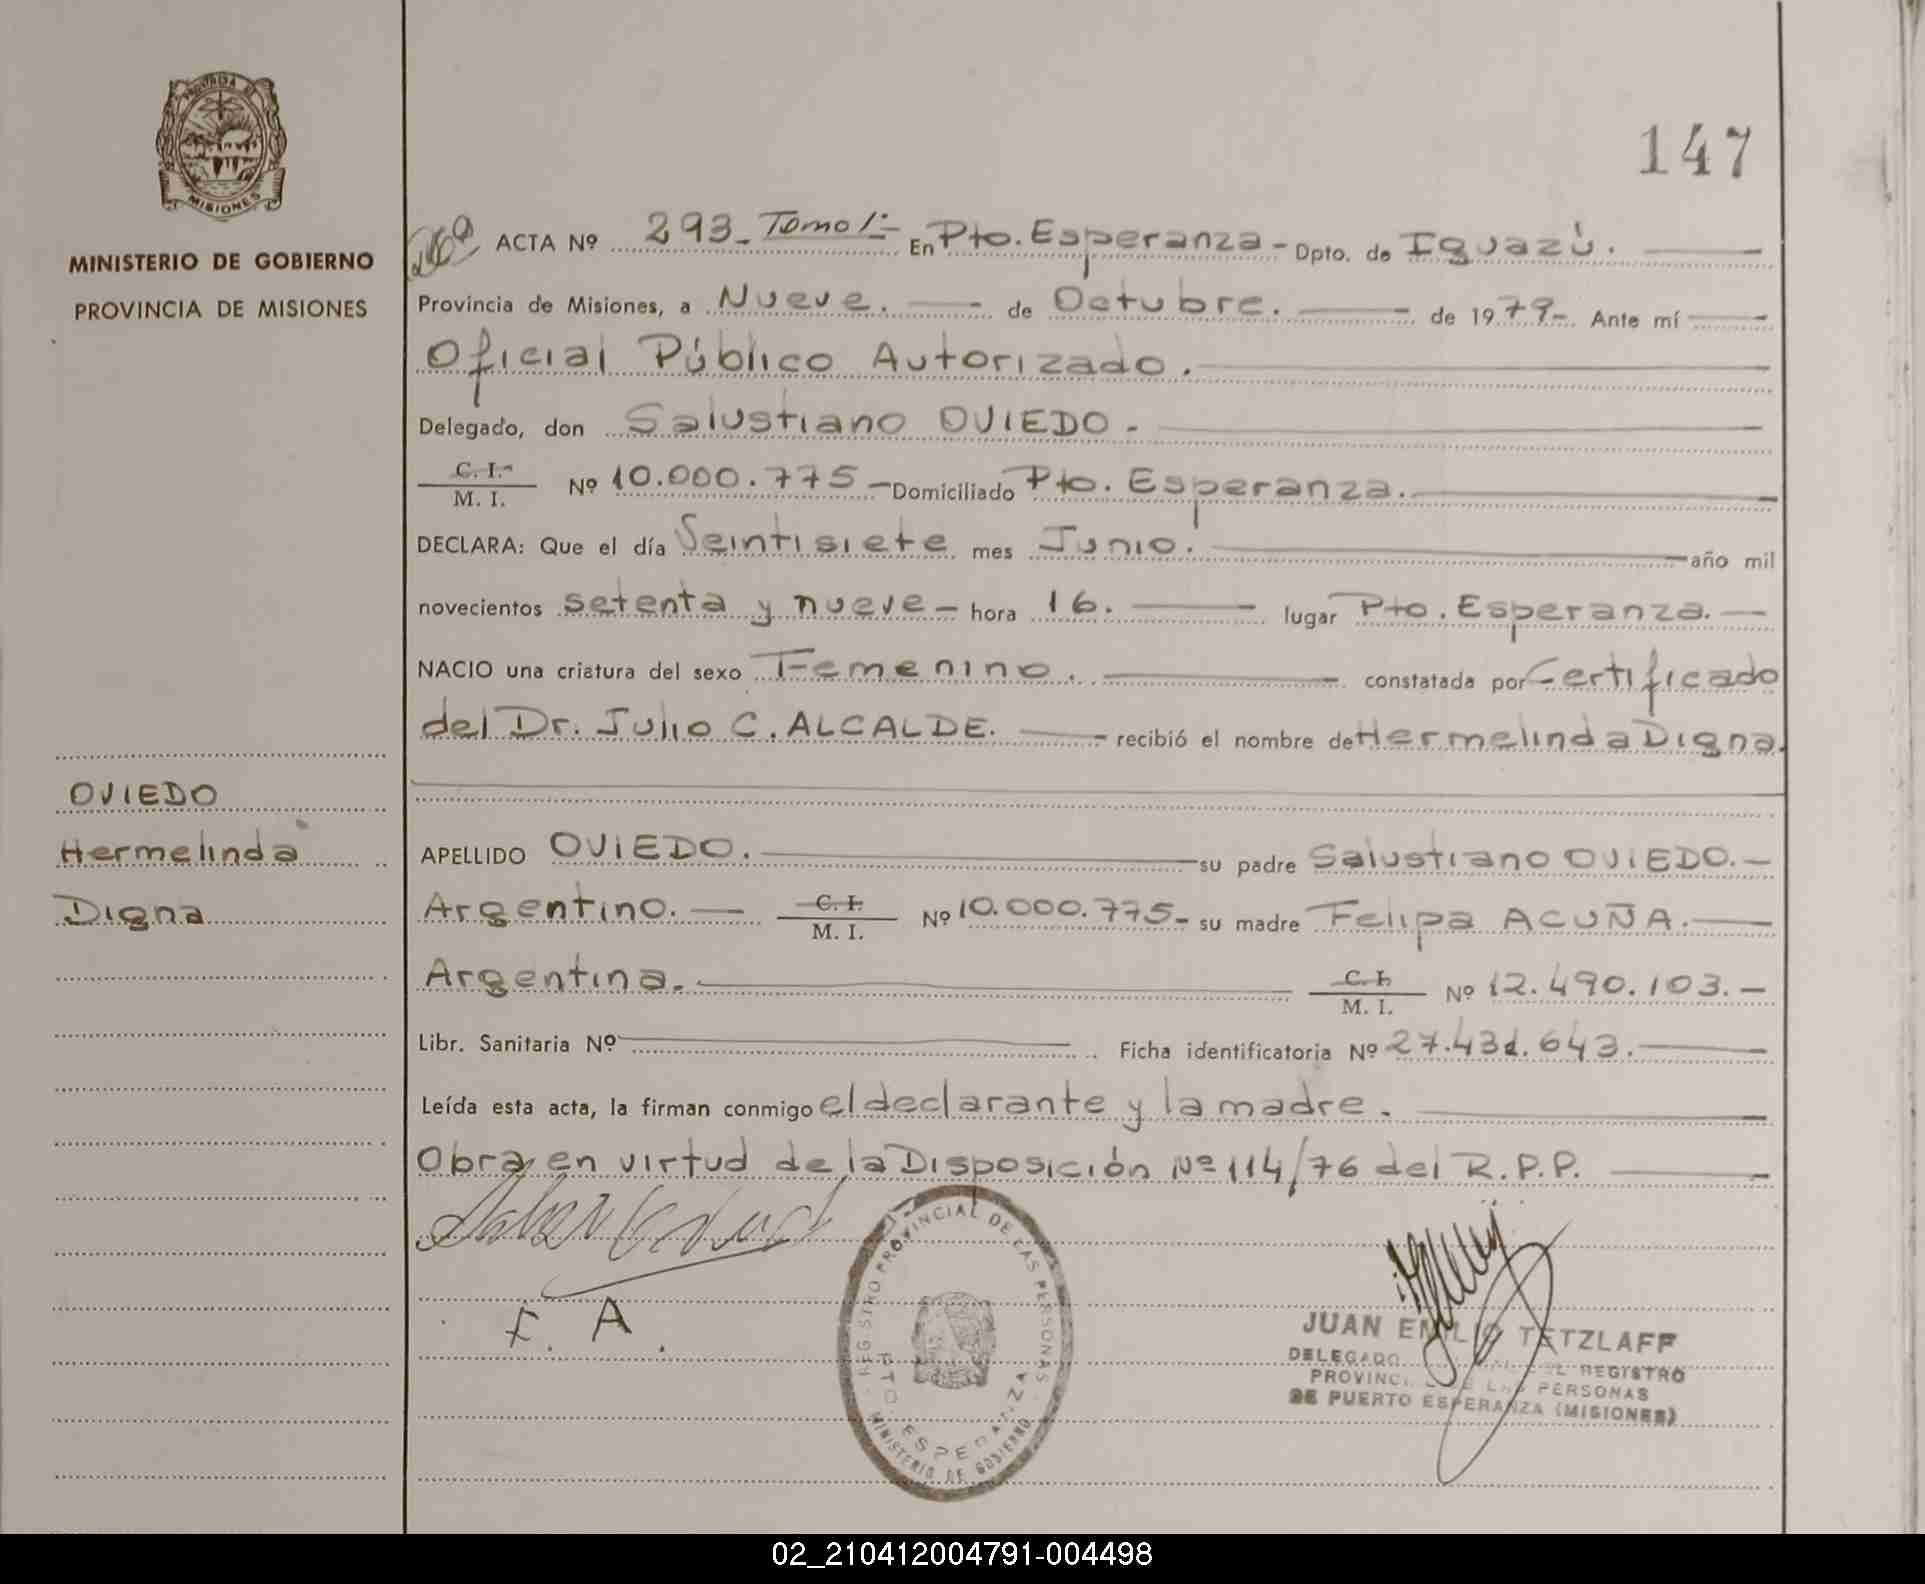 PROVINCIA DE
MISIONES
MINISTERIO DE GOBIERNO
PROVINCIA DE MISIONES
147
ACTA Nº 293_ Tomo 1:- En Pto. Esperanza - Dpto. de Iguazú.
Provincia de Misiones, a Nueve. de Octubre. de 1979-. Ante mí
Oficial Público Autorizado.
Delegado, don Salustiano OVIEDO -
C. I. M. I. Nº 10.000.775 - Domiciliado Pto. Esperanza.
DECLARA: Que el día Veintisiete mes Junio. año mil
novecientos setenta y nueve - hora 16. lugar Pto. Esperanza.
NACIO una criatura del sexo Femenino. constatada por Certificado
del Dr. Julio C. ALCALDE. recibió el nombre de Hermelinda Digna.
OVIEDO
Hermelinda
Digna
APELLIDO OVIEDO. su padre Salustiano OVIEDO. -
Argentino. C. I. M. I. Nº 10.000.775- su madre Felipa ACUÑA.
Argentina. C. I. M. I. Nº 12.490.103. -
Libr. Sanitaria Nº Ficha identificatoria Nº 27.431.643.
Leída esta acta, la firman conmigo el declarante y la madre.
Obra en virtud de la Disposición Nº 114/76 del R.P.P.
F. A.
REGISTRO PROVINCIAL DE LAS PERSONAS
PTO. ESPERANZA
MINISTERIO DE GOBIERNO
JUAN EMILIO TETZLAFF
DELEGADO DEL REGISTRO
PROVINCIAL DE LAS PERSONAS
DE PUERTO ESPERANZA (MISIONES)
02_210412004791-004498